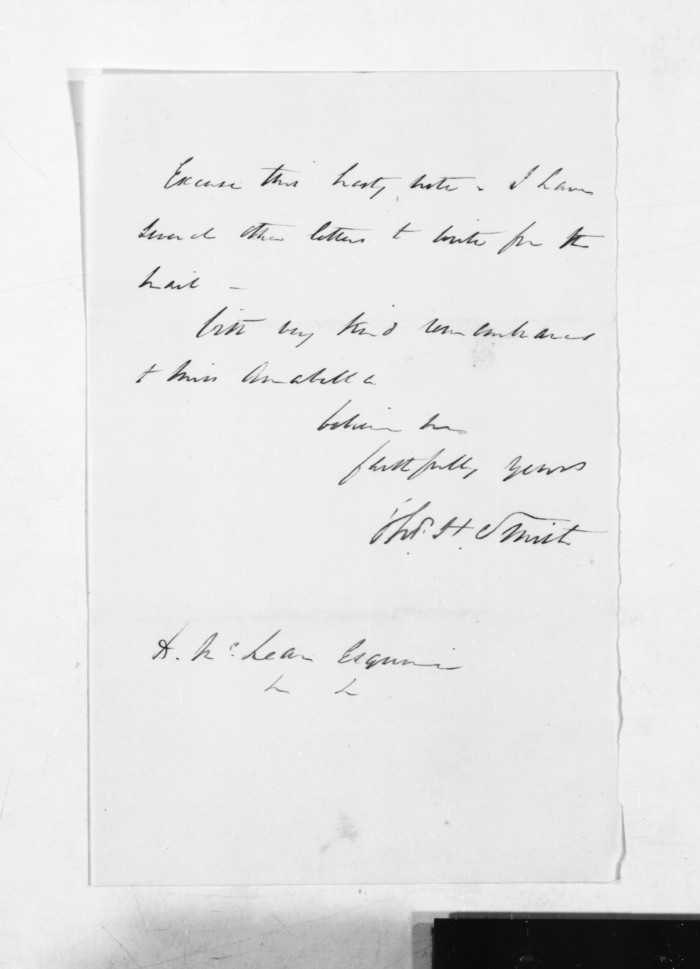 Excuse this hasty note - I have
several other letters to write for the
mail -
With very kind remembrances
to Miss Annabella
believe me
faithfully yours
Thos. H. Smith
McLean Esquire